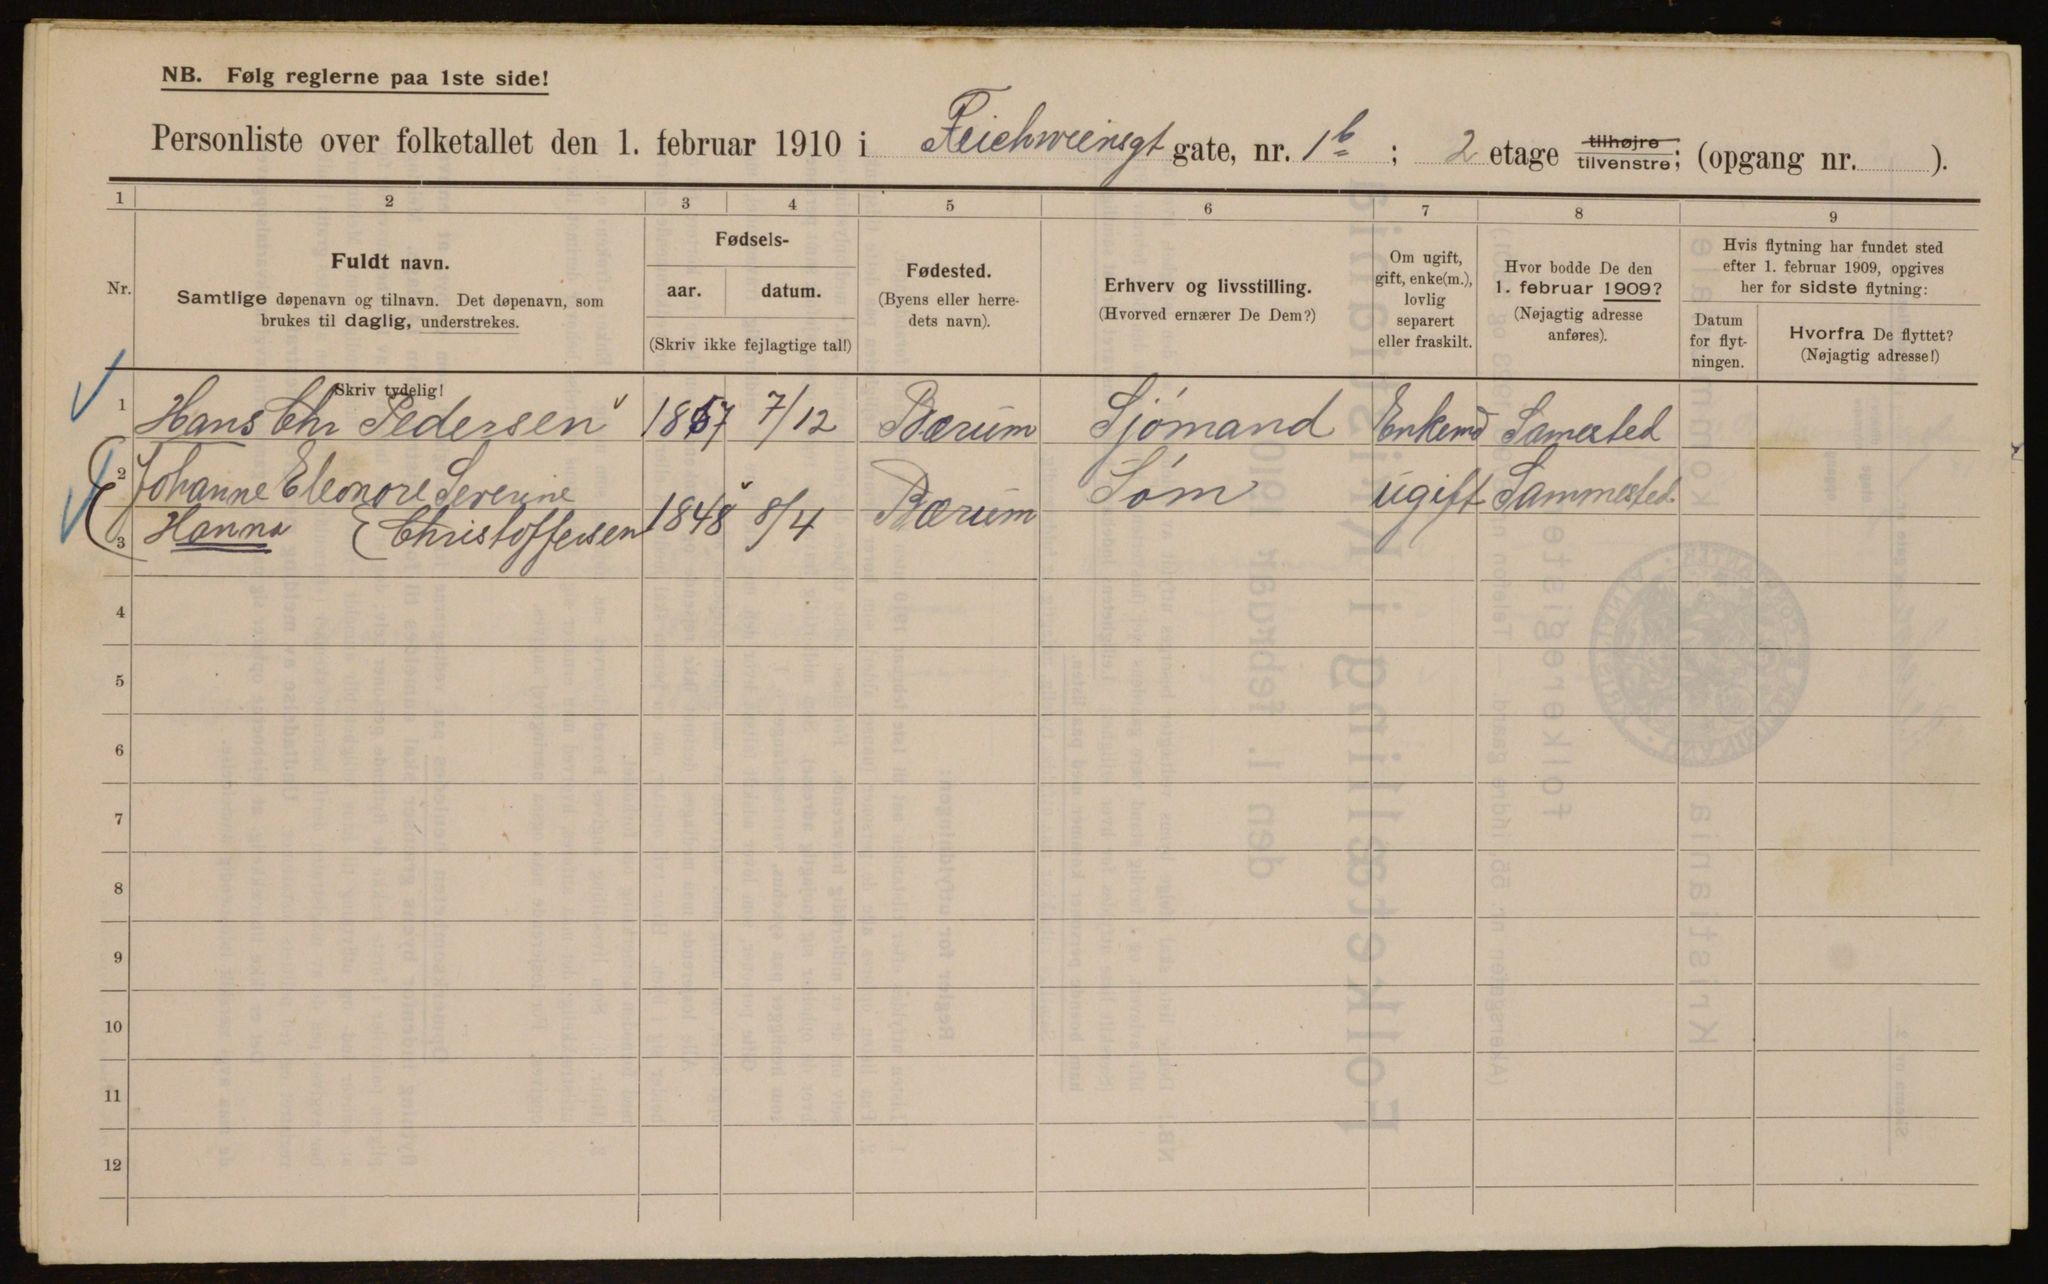 NB. Følg reglerne paa 1ste side!
Personliste over folketallet den 1. februar 1910 i Feichweinsgt gate, nr. 1 b ; 2 etage tilhøjre tilvenstre; (opgang nr. ).
1 2 3 4 5 6 7 8 9
Nr.
Fuldt navn.
Samtlige døpenavn og tilnavn. Det døpenavn, som
brukes til daglig, understrekes.
Skriv tydelig!
Fødsels-
aar. datum.
(Skriv ikke fejlagtige tal!)
Fødested.
(Byens eller herre-
dets navn).
Erhverv og livsstilling.
(Hvorved ernærer De Dem?)
Om ugift,
gift, enke(m.),
lovlig
separert
eller fraskilt.
Hvor bodde De den
1. februar 1909?
(Nøjagtig adresse
anføres).
Hvis flytning har fundet sted
efter 1. februar 1909, opgives
her for sidste flytning:
Datum
for flyt-
ningen.
Hvorfra De flyttet?
(Nøjagtig adresse!)
1 Hans Chr Pedersen 1857 7/12 Bærum Sjømand Enkemd Samested
2 Johanne Eleonore Severine
3 Hanna Christoffersen 1848 8/4 Bærum Søm ugift Sammested
4
5
6
7
8
9
10
11
12